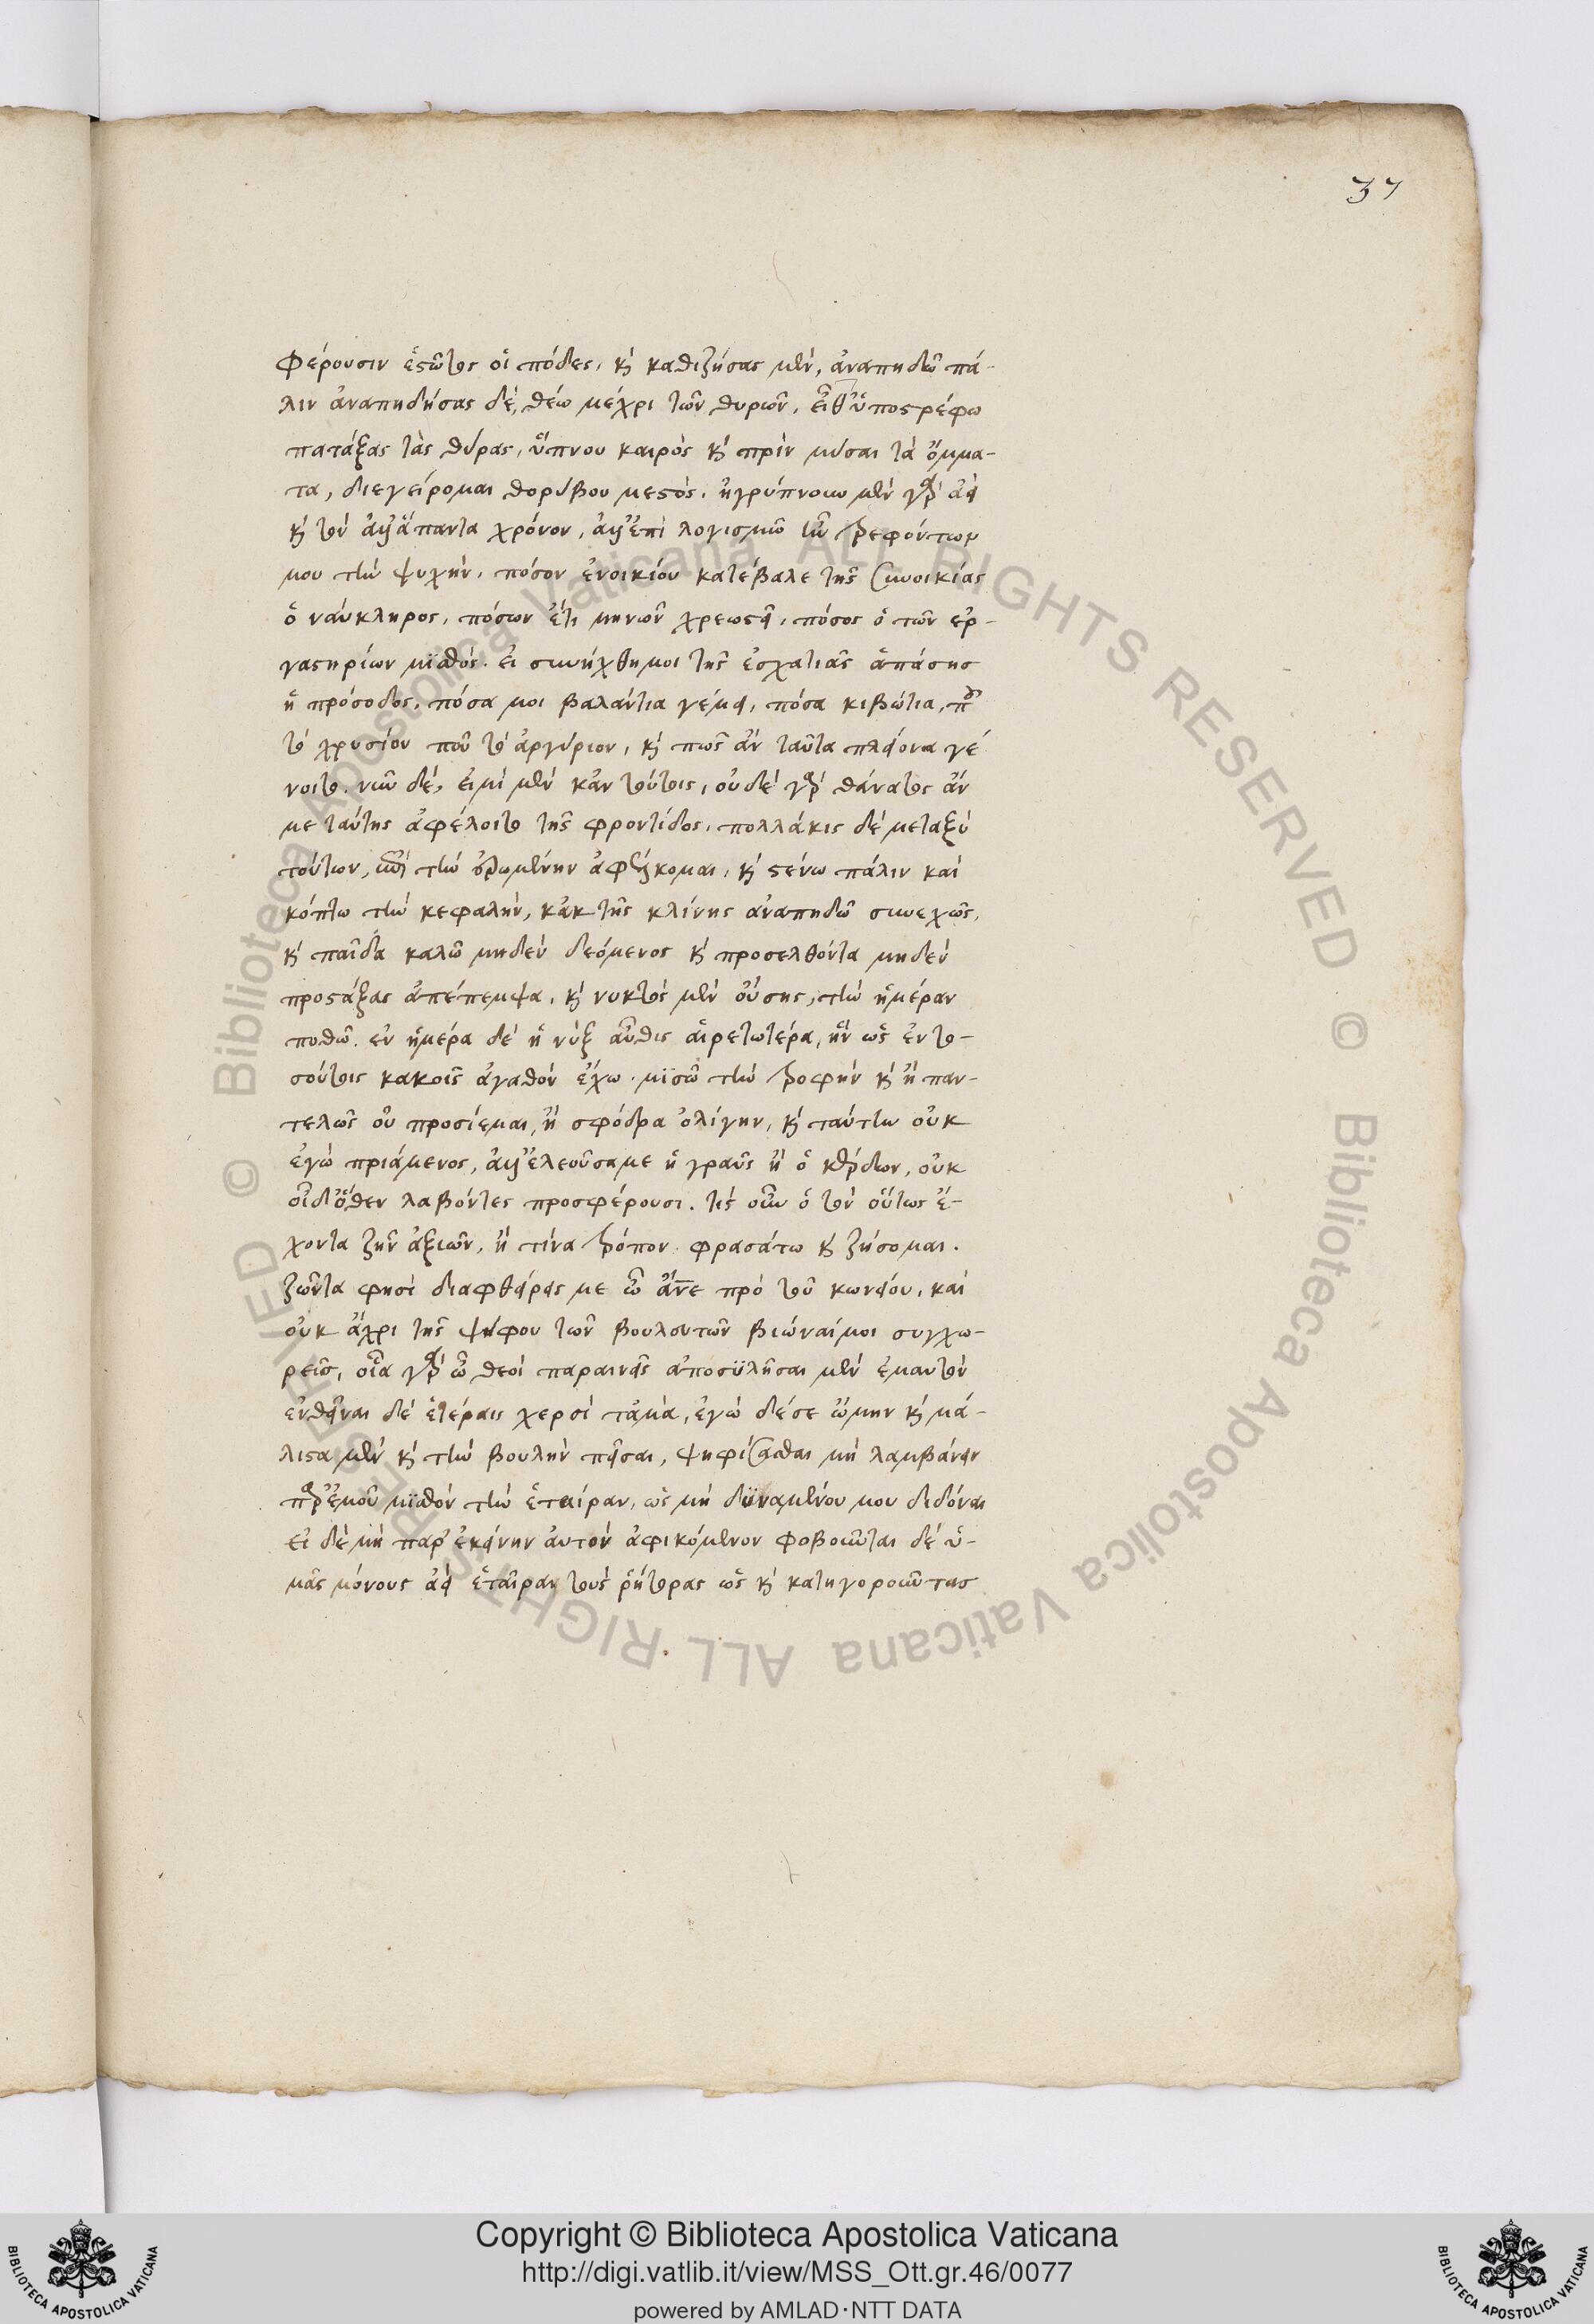 37
φέρουσιν ἑστῶτος οἱ πόδες, καὶ καθιζήσας μὲν, ἀναπηδῶ πά-
λιν ἀναπηδήσας δὲ, θέω μέχρι τῶν θυρῶν, εἶθ' ὑποστρέφω
πατάξας τὰς θύρας, ὕπνου καιρὸς καὶ πρὶν μύσαι τὰ ὄμμα-
τα, διεγείρομαι θορύβου μεστός. ἠγρύπνουν μὲν γὰρ ἀεὶ
καὶ τὸν ἄλλ' ἅπαντα χρόνον, ἀλλ' ἐπὶ λογισμῶ τῶν τρεφόντων
μου τὴν ψυχὴν, πόσον ἐνοικίου κατέβαλε τῆς συνοικίας
ὁ ναύκληρος, πόσων ἔτι μηνῶν χρεωστεῖ, πόσος ὁ τῶν ἐρ-
γαστηρίων μισθός. εἰ συνήχθη μοι τῆς ἐσχατιᾶς ἁπάσης
ἡ πρόσοδος, πόσα μοι βαλάντια γέμει, πόσα κιβώτια, ποῦ
τὸ χρυσίον ποῦ τὸ ἀργύριον, καὶ πῶς ἂν ταῦτα πλείονα γέ
νοιτο. νῦν δὲ, εἰμὶ μὲν κἀν τούτοις, οὐδὲ γὰρ θάνατος ἄν
με ταύτης ἀφέλοιτο τῆς φροντίδος, πολλάκις δὲ μεταξὺ
τούτων, ἐπὶ τὴν ἐρωμένην ἀφίκομαι, καὶ στένω πάλιν καὶ
κόπτω τὴν κεφαλὴν, κἀκ τῆς κλίνης ἀναπηδῶ συνεχῶς,
καὶ παῖδα καλῶ μηδὲν δεόμενος καὶ προσελθόντα μηδὲν
προστάξας ἀπέπεμψα, καὶ νυκτὸς μὲν οὔσης, τὴν ἡμέραν
ποθῶ. ἐν ἡμέρα δὲ ἡ νὺξ αὖθις αἱρετωτέρα, ἣν ὡς ἐν το-
σούτοις κακοῖς ἀγαθὸν ἔχω. μισῶ τὴν τροφὴν καὶ ἢ παν-
τελῶς οὐ προσίεμαι, ἢ σφόδρα ὀλίγην, καὶ ταύτην οὐκ
ἐγὼ πριάμενος, ἀλλ' ἐλεοῦσα με ἡ γραῦς ἢ ὁ κέρδων, οὐκ
οἶδ' ὅθεν λαβόντες προσφέρουσι. τίς οὖν ὁ τὸν οὕτως ἔ-
χοντα ζῆν ἀξιῶν, ἢ τίνα τρόπον φρασάτω καὶ ζήσομαι.
ζῶντα φησὶ διαφθείρεις με ὦ ἄνε πρὸ τοῦ κωνείου, καὶ
οὐκ ἄχρι τῆς ψήφου τῶν βουλευτῶν βιῶναί μοι συγχω-
ρεῖς, οἷα γὰρ ὦ θεοὶ παραινεῖς ἀποσυλῆσαι μὲν ἐμαυτὸν
ἐνθεῖναι δὲ ἑτέραις χερσὶ τἀμὰ, ἐγὼ δέ σε ᾤμην καὶ μά-
λιστα μὲν καὶ τὴν βουλὴν πεῖσαι, ψηφίσασθαι μὴ λαμβάνειν
παρ' ἐμοῦ μισθὸν τὴν ἑταίραν, ὡς μὴ δυναμένου μου διδόναι
εἰ δὲ μὴ παρ' ἐκείνην αὐτὸν ἀφικόμενον φοβοῦνται δὲ ὑ-
μᾶς μόνους ἀεὶ ἑταῖραι τοὺς ῥήτορας ὡς καὶ κατηγοροῦντας
Copyright © Biblioteca Apostolica Vaticana
http://digi.vatlib.it/view/MSS_Ott.gr.46/0077
powered by AMLAD·NTT DATA